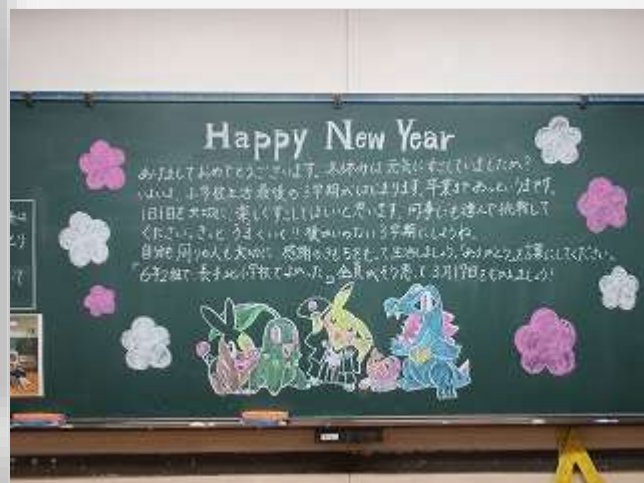 Happy New Year
あけましておめでとうございます。冬休みは元気にすごしていましたか？
いよいよ小学校生活最後の3学期がはじまります。卒業まであっという間です。
1日1日を大切に、楽しくすごしてほしいと思います。何事にも進んで挑戦して
ください。きっとうまくいく!! 悔いのない3学期にしようね。
自分も周りの人も大切に、感謝の気持ちをもって生活しましょう。ありがとうを言葉にしてください。
「6年2組で、小学校でよかった。」全員がそう思って3月17日をむかえましょう！